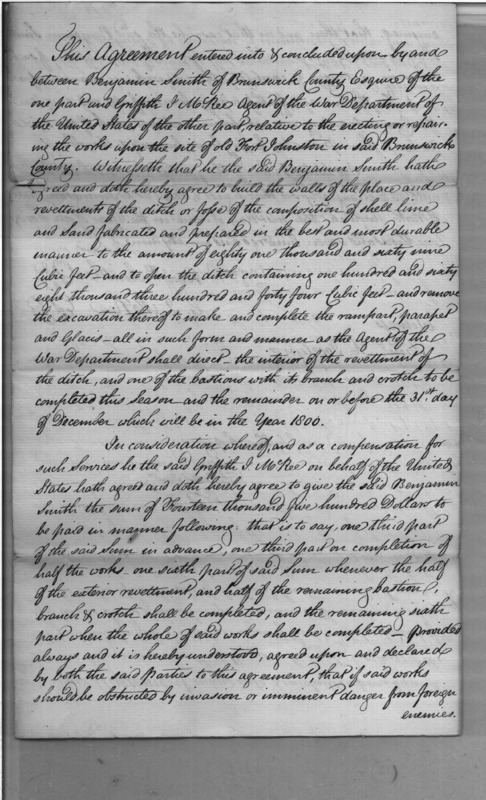 This Agreement entered into & concluded upon by and
between Benjamin Smith of Brunswick County Esquire of the
one part and Griffith J McRee Agent of the War Department of
the United States of the other part, relative to the erecting or repair-
ing the works upon the site of old Fort Johnston in said Brunswick
County. Witnesseth that he the said Benjamin Smith hath
agreed and doth hereby agree to build the walls of the place and
revettments of the ditch or fosse of the composition of shell lime
and Sand fabricated and prepared in the best and most durable
manner to the amount of eighty one thousand and sixty nine
Cubic feet - and to open the ditch containing one hundred and sixty
eight thousand three hundred and forty four Cubic feet - and remove
the excavation thereof to make and complete the rampart, parapet
and Glacis - all in such form and manner as the Agent of the
War Department shall direct the interior of the revettment of
the ditch, and one of the bastions with its branch and crotch to be
completed this Season and the remainder on or before the 31st day
of December which will be in the Year 1800.
In consideration whereof, and as a compensation for
such Services he the said Griffith J McRee on behalf of the United
States hath agreed and doth hereby agree to give the said Benjamin
Smith the sum of Fourteen thousand five hundred Dollars to
be paid in manner following: that is to say, one third part
of the said Sum in advance, one third part on completion of
half the works one sixth part of said Sum whenever the half
of the exterior revettment, and half of the remaining bastion,
branch & crotch shall be completed, and the remaining sixth
part when the whole of said works shall be completed - Provided
always and it is hereby understood, agreed upon and declared
by both the said parties to this agreement, that if said works
should be obstructed by invasion or imminent danger from foreign
enemies.